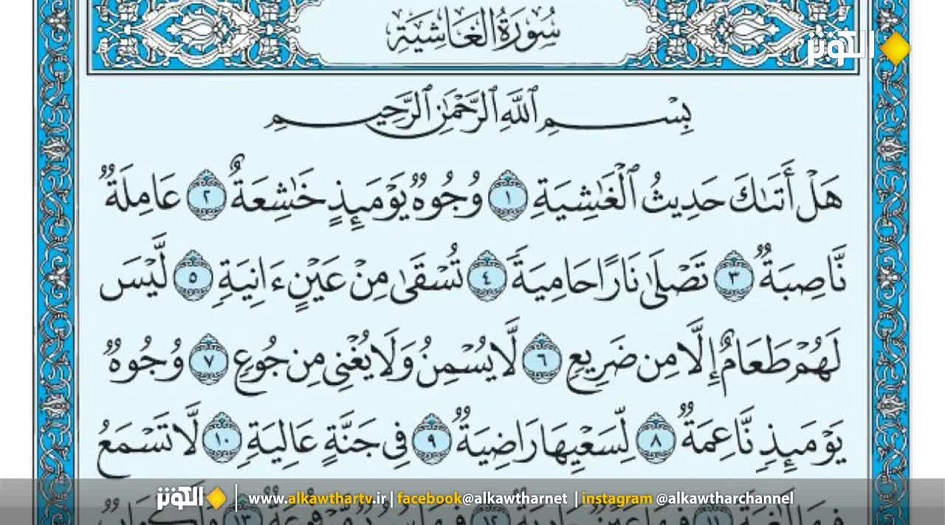 سُورَةُ الغَاشِيَةِ
الكوثر
بِسْمِ ٱللَّهِ ٱلرَّحْمَٰنِ ٱلرَّحِيمِ
هَلْ أَتَىٰكَ حَدِيثُ ٱلْغَٰشِيَةِ ١ وُجُوهٌ يَوْمَئِذٍ خَٰشِعَةٌ ٢ عَامِلَةٌ
نَّاصِبَةٌ ٣ تَصْلَىٰ نَارًا حَامِيَةً ٤ تُسْقَىٰ مِنْ عَيْنٍ ءَانِيَةٍ ٥ لَّيْسَ
لَهُمْ طَعَامٌ إِلَّا مِن ضَرِيعٍ ٦ لَّا يُسْمِنُ وَلَا يُغْنِي مِن جُوعٍ ٧ وُجُوهٌ
يَوْمَئِذٍ نَّاعِمَةٌ ٨ لِّسَعْيِهَا رَاضِيَةٌ ٩ فِي جَنَّةٍ عَالِيَةٍ ١٠ لَّا تَسْمَعُ
فِيهَا لَٰغِيَةً ١١ فِيهَا عَيْنٌ جَارِيَةٌ ١٢ فِيهَا سُرُرٌ مَّرْفُوعَةٌ ١٣ وَأَكْوَابٌ
الكوثر | www.alkawthartv.ir | facebook@alkawtharnet | instagram @alkawtharchannel